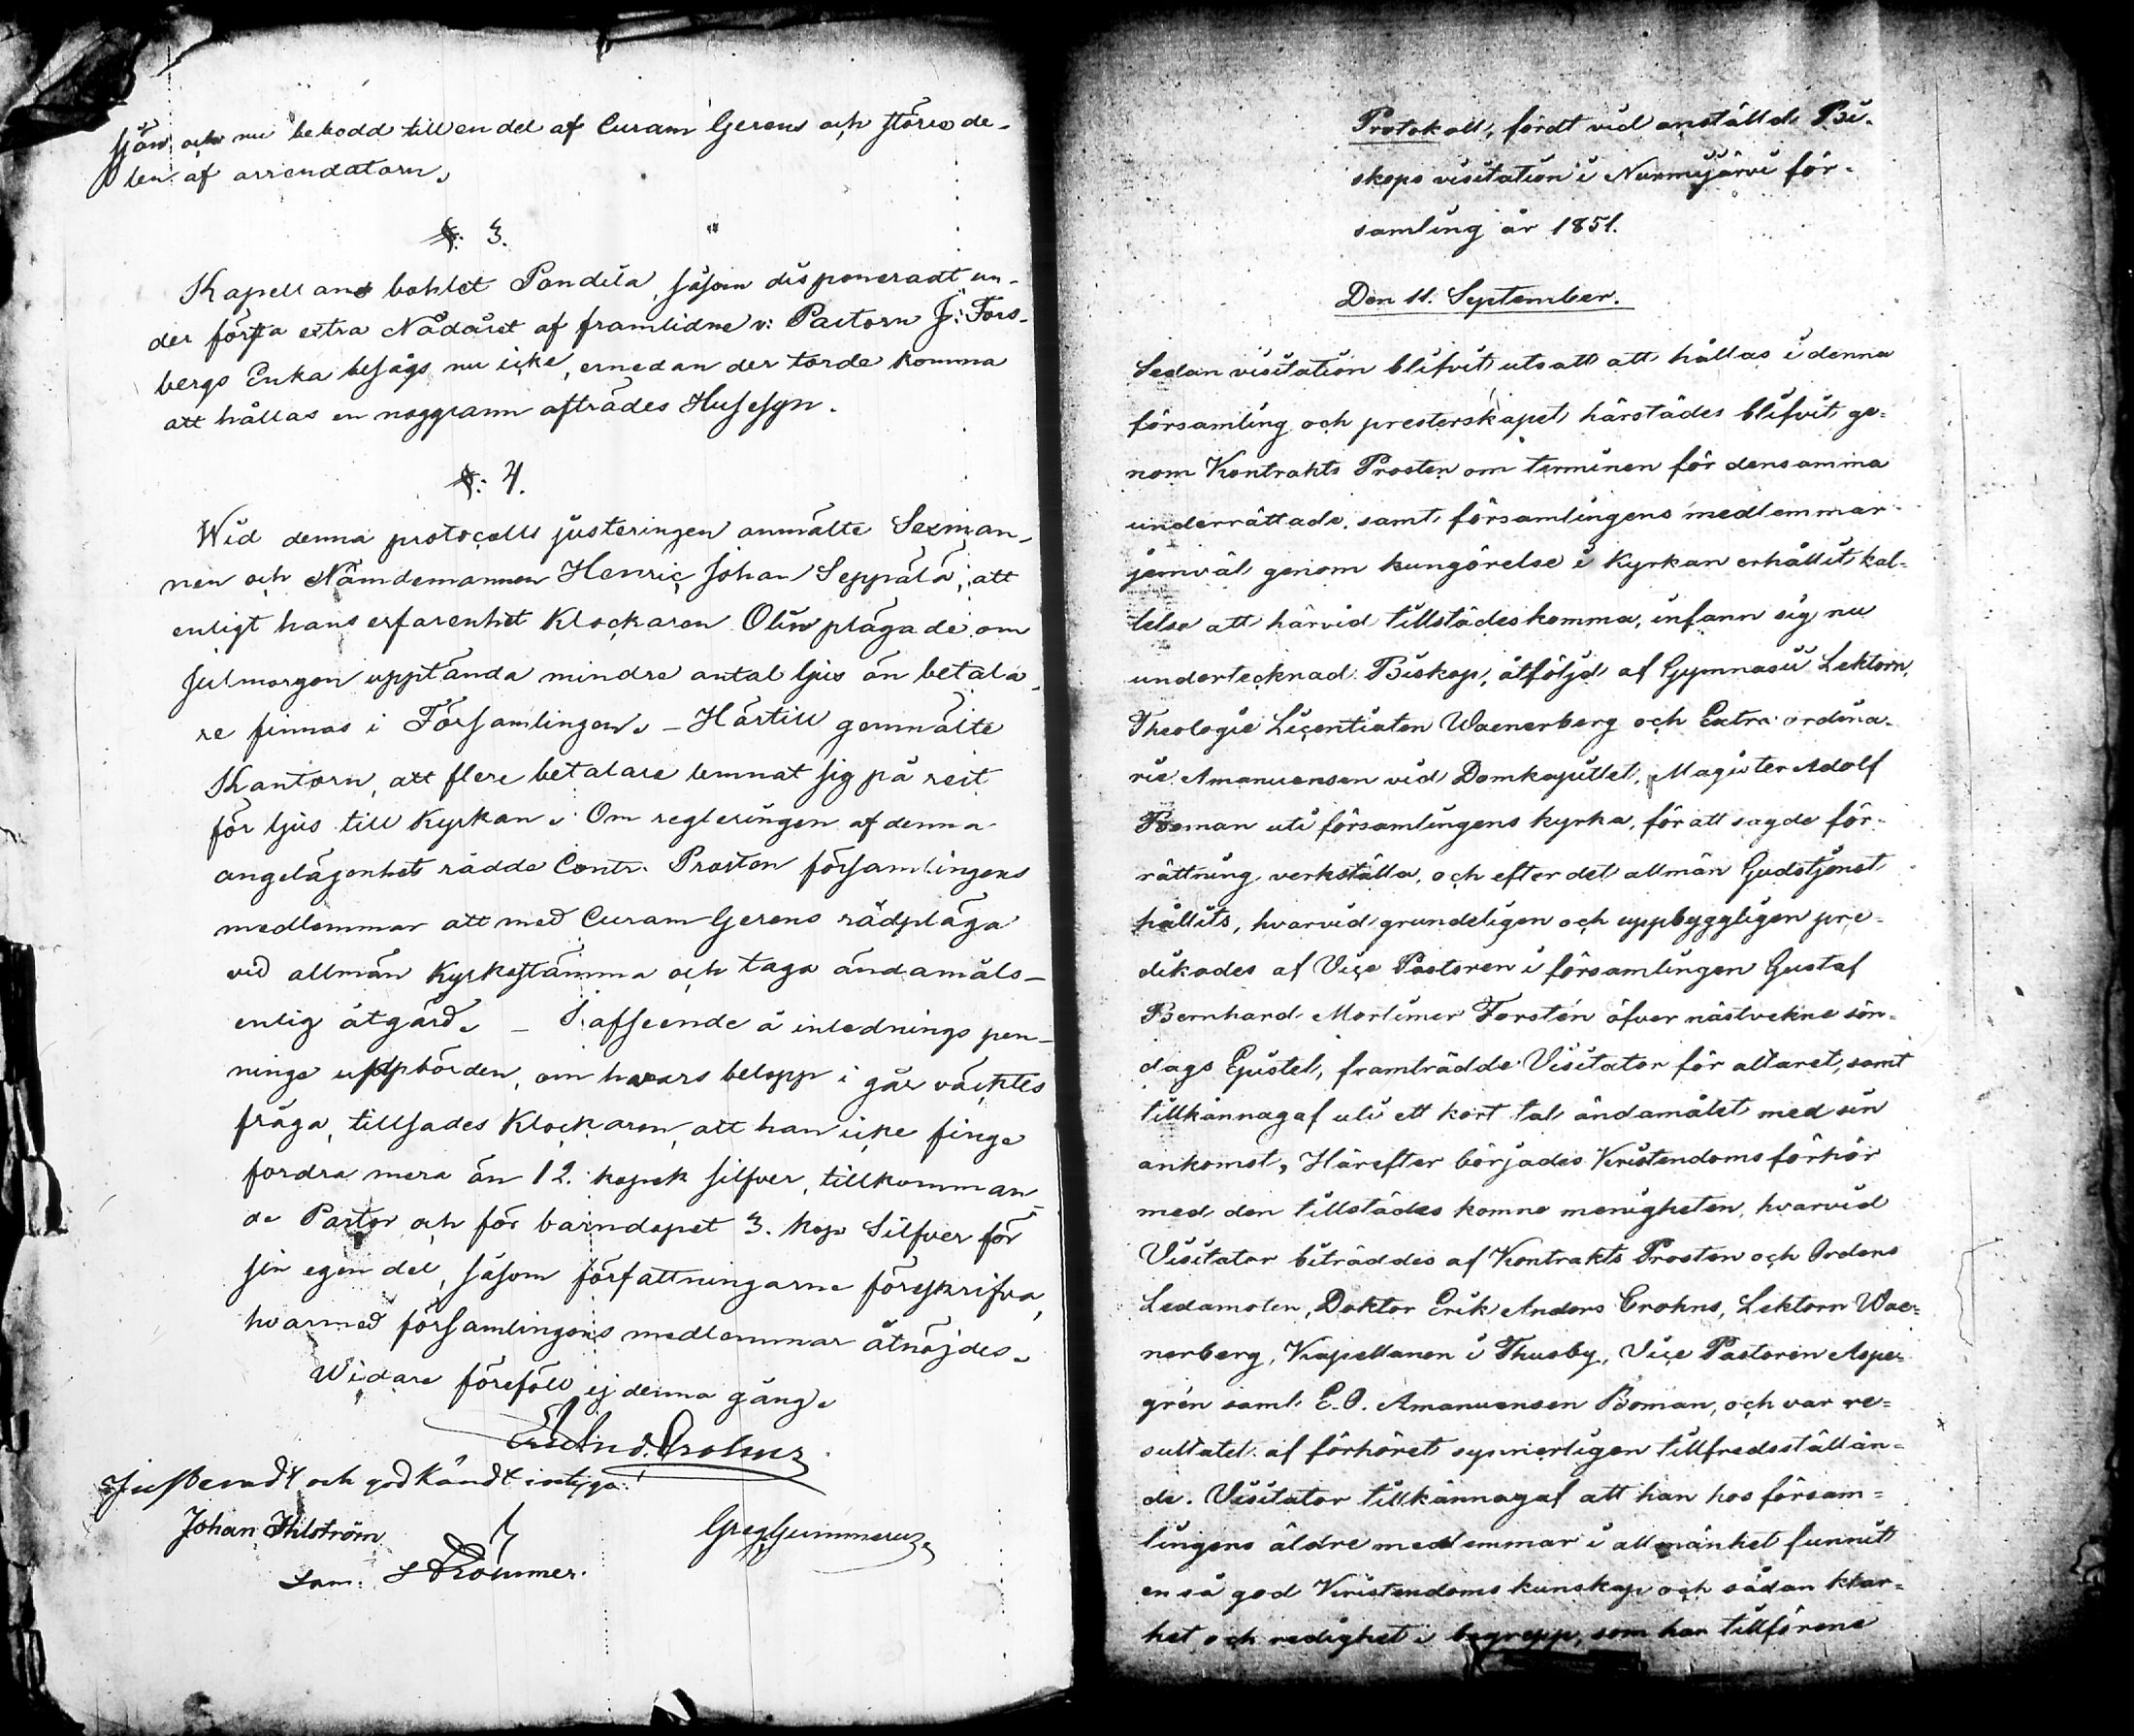 sjön och nu bebodd till en del af Curam Gerens och större de-
len af arrendatorn.
§. 3.
Kapellans bohlet Pondila, såsom disponeradt un-
der första extra Nådåret af framlidne v: Pastorn J: Fors-
bergs Enka besågs nu icke, emedan der torde komma
att hållas en noggrann afträdes Husesyn.
§: 4.
Wid denna protocolls justeringen anmälte Sexman-
nen och Nämdemannen Henric Johan Seppälä, att
enligt hans erfarenhet Klockaren Olin plägade om
Julmorgon upptända mindre antal ljus än betala-
re finnas i Församlingen. - Härtill genmälte
Kantorn, att flere betalare lemnat sig på rest
för ljus till Kyrkan. Om regleringen af denna
angelägenhet rådde Contr. Prosten församlingens
medlemmar att med Curam Gerens rådpläga
vid allmän Kyrkostämma och taga ändamåls-
enlig åtgärd. - I afseende å inlednings pen-
ninge uppbörden, om hvars belopp i går väcktes
fråga, tillsades Klockaren, att han icke finge
fordra mera än 12. kopek silfver, tillkomman-
de Pastor och för barndopet 3. kop Silfver för
sin egen del, såsom författningarne föreskrifva,
hvarmed församlingens medlemmar åtnöjdes.
Widare föreföll ej denna gång.
Erik And. Crohns
Justeradt och godkändt intyga:
Johan Ihlström
Greg Gummerus.
Sam:
Protokoll, fördt vid anställde Bi-
skops visitation i Nurmijärvi för-
samling år 1851.
Den 11. September.
Sedan visitation blifvit utsatt att hållas i denna
församling och presterskapet härstädes blifvit ge-
nom Kontrakts Prosten om terminen för densamma
underrättade, samt församlingens medlemmar
jemväl genom kungörelse i Kyrkan erhållit kal-
lelse att härvid tillstädeskomma, infann sig nu
undertecknad Biskop, åtföljd af Gymnasii Lektorn,
Theologie Licentiaten Waenerberg och Extra ordina-
rie Amanuensen vid Domkapitlet, Magister Adolf
Boman uti församlingens kyrka, för att sagde för-
rättning verkställa, och efter det allmän Gudstjenst
hållits, hvarvid grundeligen och uppbyggligen pre-
dikades af Vice Pastoren i församlingen Gustaf
Bernhard Mortimer Forstén öfver nästvekne sön-
dags Epistel, framträdde Visitator för altaret, samt
tillkännagaf uti ett kort tal ändamålet med sin
ankomst, Härefter börjades Kristendoms förhör
med den tillstädes komne menigheten, hvarvid
Visitator biträddes af Kontrakts Prosten och Ordens
Ledamoten, Doktor Erik Anders Crohns, Lektorn Wae-
nerberg, Kapellanen i Thusby, Vice Pastoren Asper
grén samt E. O. Amanuensen Boman, och var re-
sultatet af förhöret synnerligen tillfredsställan-
de. Visitator tillkännagaf att han hos försam-
lingens äldre medlemmar i allmänhet funnit
en så god Kristendoms kunskap och sådan klar-
het och redighet i begrepp, som han tillförene